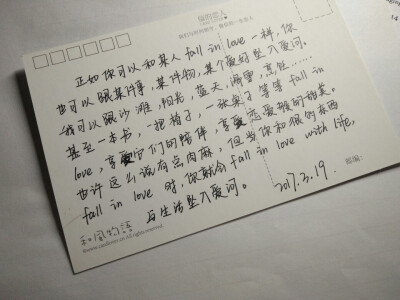 正如你可以和某人 fall in love 一样,你
也可以跟某件事,某件物,某个爱好坠入爱河。
我可以跟沙滩,阳光,蓝天,滑雪,烹饪……
甚至一本书,一把椅子,一张桌子等等 fall in
love,享受它们的陪伴,享受恋爱般的甜美。
也许这么说有点肉麻,但当你和很多东西
fall in love 时,你就会 fall in love with life,
与生活坠入爱河。
2017.3.19.
邮编:
和风物语
All rights reserved.
14